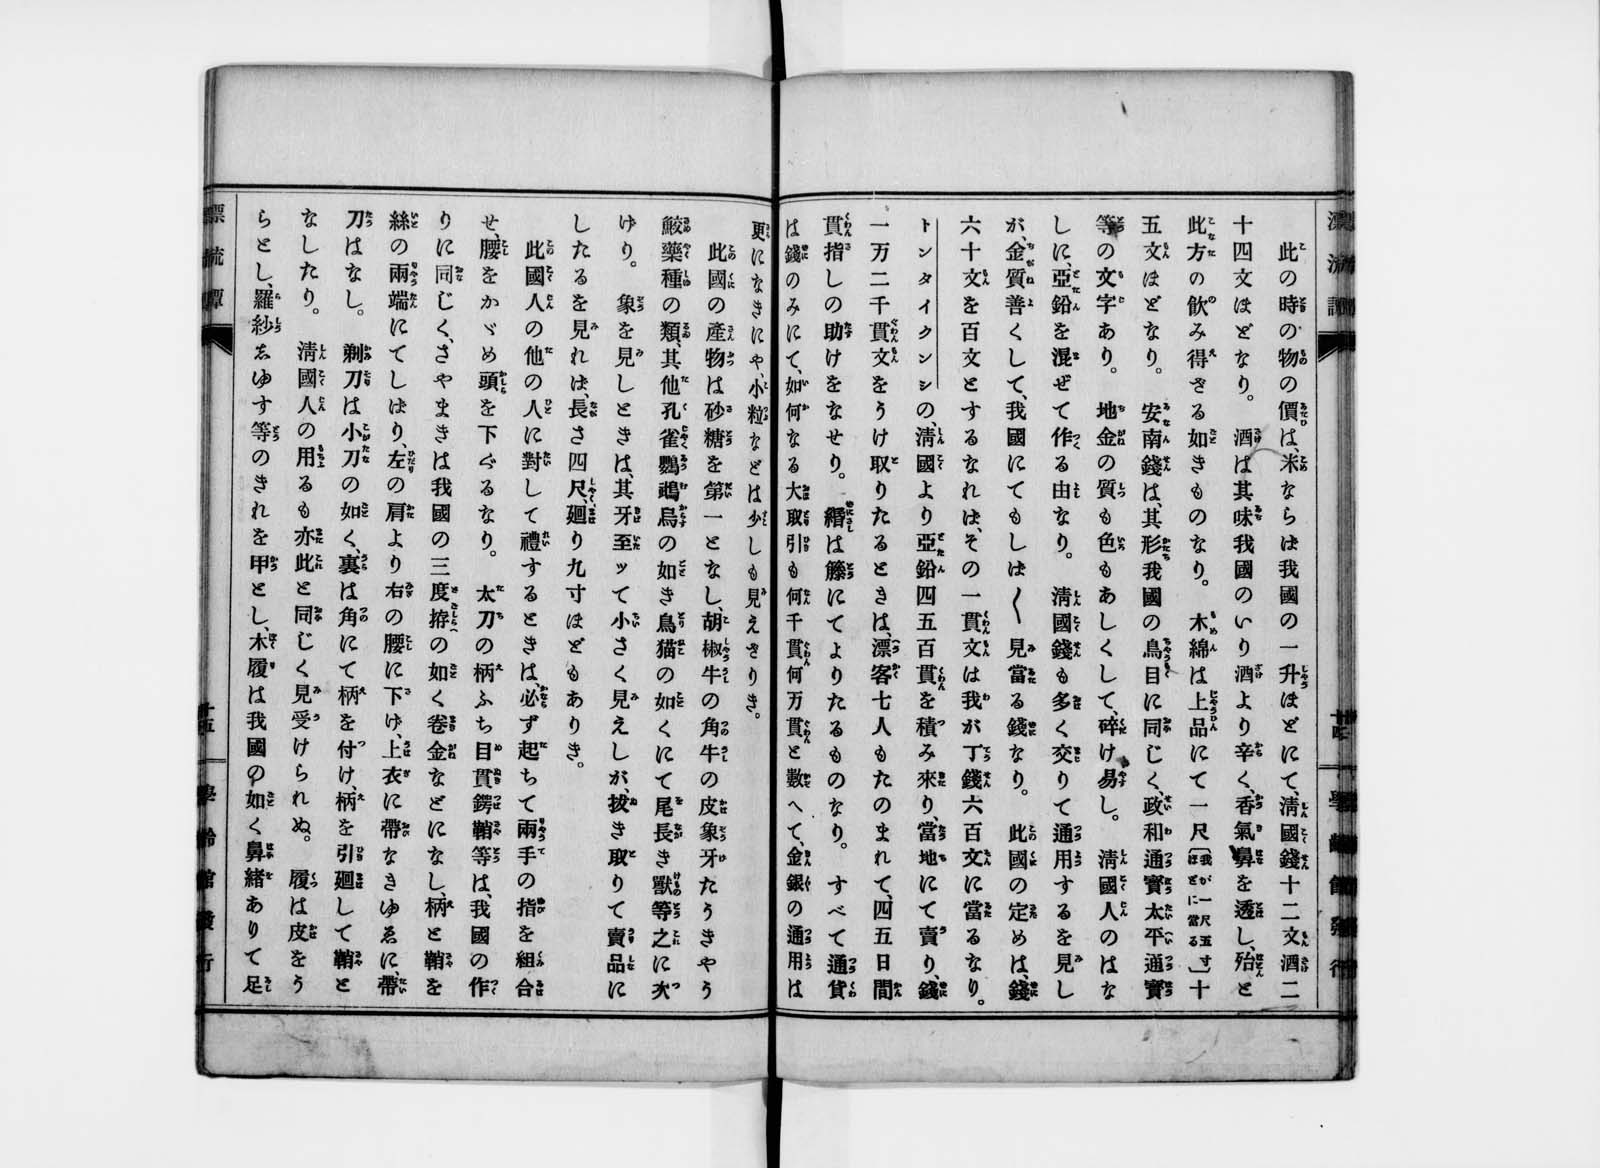 此の時の物の價は、米ならは我國の一升ほどにて、淸國錢十二文酒二
十四文ほどなり。 酒は其味我國のいり酒より辛く、香氣鼻を透し、殆と
此方の飮み得ざる如きものなり。 木綿は上品にて一尺〔我が一尺五寸ほどに當る〕十
五文ほどなり。 安南錢は、其形我國の鳥目に同じく、政和通寳太平通寳
等の文字あり。 地金の質も色もあしくして、碎け易し。 淸國人のはな
しに、亞鉛を混ぜて作る由なり。 淸國錢も多く交りて通用するを見し
が、金質善くして、我國にてもしは〱見當る錢なり。 此國の定めは、錢
六十文を百文とするなれは、その一貫文は我が丁錢六百文に當るなり。
トンタイクンシの、淸國より亞鉛四五百貫を積み來り、當地にて賣り、錢
一万二千貫文をうけ取りたるときは、漂客七人もたのまれて、四五日間
貫指しの助けをなせり。 繦は籐にてよりたるものなり。 すべて通貨
は錢のみにて、如何なる大取引も何千貫何万貫と數へて、金銀の通用は
更になきにや、小粒などは少しも見えざりき。
此國の產物は砂糖を第一となし、胡椒牛の角牛の皮象牙たうきやう
鮫藥種の類、其他孔雀鸚鵡烏の如き鳥猫の如くにて尾長き獸等之に次
げり。 象を見しときは、其牙至ッて小さく見えしが、拔き取りて賣品に
したるを見れは、長さ四尺、廻り九寸ほどもありき。
此國人の他の人に對して禮するときは、必ず起ちて兩手の指を組合
せ、腰をかゞめ頭を下ぐるなり。 太刀の柄ふち目貫鍔鞘等は、我國の作
りに同じく、さやまきは我國の三度拵の如く卷金などになし、柄と鞘を
絲の兩端にてしばり、左の肩より右の腰に下げ、上衣に帶なきゆゑに、帶
刀はなし。 剃刀は小刀の如く、裏は角にて柄を付け、柄を引廻して鞘と
なしたり。 淸國人の用るも亦此と同じく見受けられぬ。 履は皮をう
らとし、羅紗ゑゆす等のきれを甲とし、木履は我國の如く鼻緒ありて足
漂流譚
十五
學齡館發行